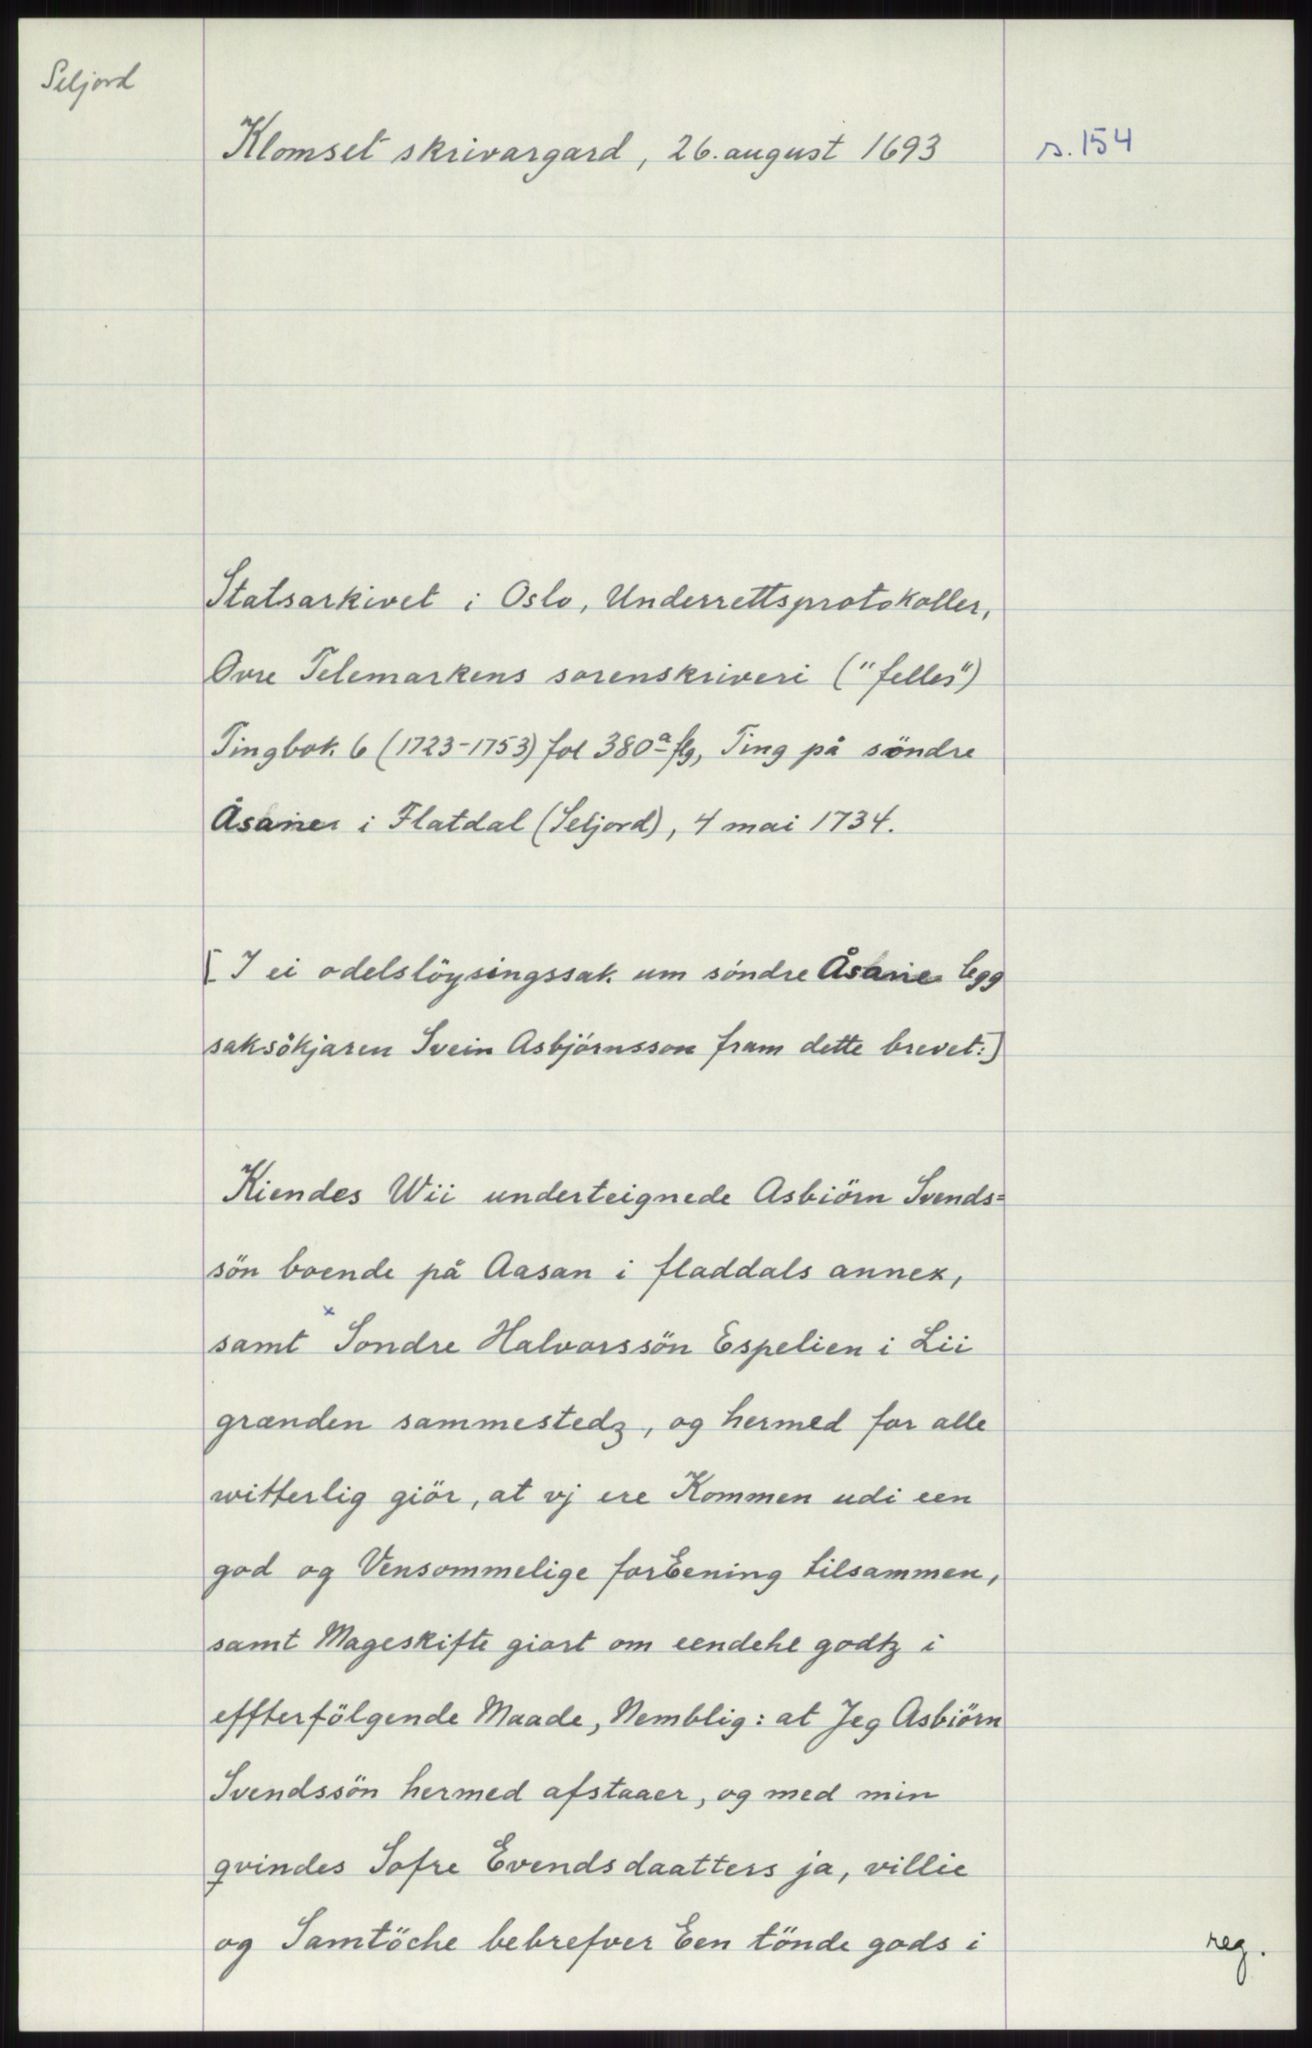 Seljord
Klomset skrivargard, 26. august 1693
s. 154
Statsarkivet i Oslo, Underrettsprotokoller,
Övre Telemarkens sorenskriveri ("felles")
Tingbok 6 (1723-1753) fol 380a flg, Ting på söndre
Åsane i Flatdal (Seljord), 4 mai 1734.
[I ei odelslöysingssak um söndre Åsane legg
saksökjaren Svein Asbjörnsson fram dette brevet:]
Kiendes Wii underteignede Asbiörn Svends=
sön boende på Aasan i fladdals annex,
samt x Sondre Halvorssön Espelien i Lii
grænden sammestedz, og hermed for alle
witterlig giör, at vj ere Kommen udi een
god og Vensommelige forEening tilsammen,
samt Mageskifte giort om eendehl godtz i
effterfölgende Maade, Nemblig: at Jeg Asbiörn
Svendssön hermed afstaaer, og med min
qvindes Sofre Evendsdaatters ja, villie
og Samtöche bebrefver Een tönde gods i
reg.